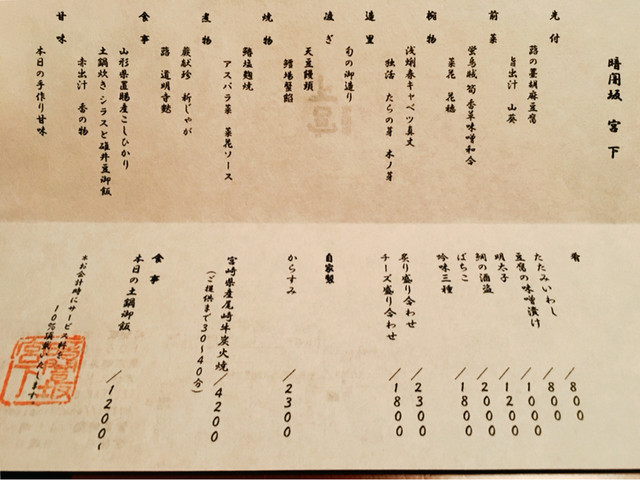 暗闇坂 宮下
先付
蕗の墨胡麻豆腐
旨出汁 山葵
前菜
蛍烏賊 筍 香草味噌和合
菜花 花穂
椀物
浅蜊春キャベツ真丈
独活 たらの芽 木ノ芽
造里
旬の御造り
凌ぎ
天豆饅頭
鱈場蟹餡
焼物
鰆塩麹焼
アスパラ菜 菜花ソース
煮物
蕨献珍 新じゃが
蕗 道明寺麩
食事
山形県置賜産こしひかり
土鍋炊き シラスと碓井豆御飯
赤出汁 香の物
甘味
本日の手作り甘味
肴
たたみいわし /800
豆腐の味噌漬け /800
明太子 /1000
鯛の酒盗 /1200
ばちこ /2000
吟味三種 /1800
炙り盛り合わせ /2300
チーズ盛り合わせ /1800
自家製
からすみ /2300
宮崎県産尾崎牛炭火焼 /4200
(ご提供まで30〜40分)
食事
本日の土鍋御飯 /1200〜
*お会計時にサービス料を
10%頂戴いたします
暗闇坂
宮下